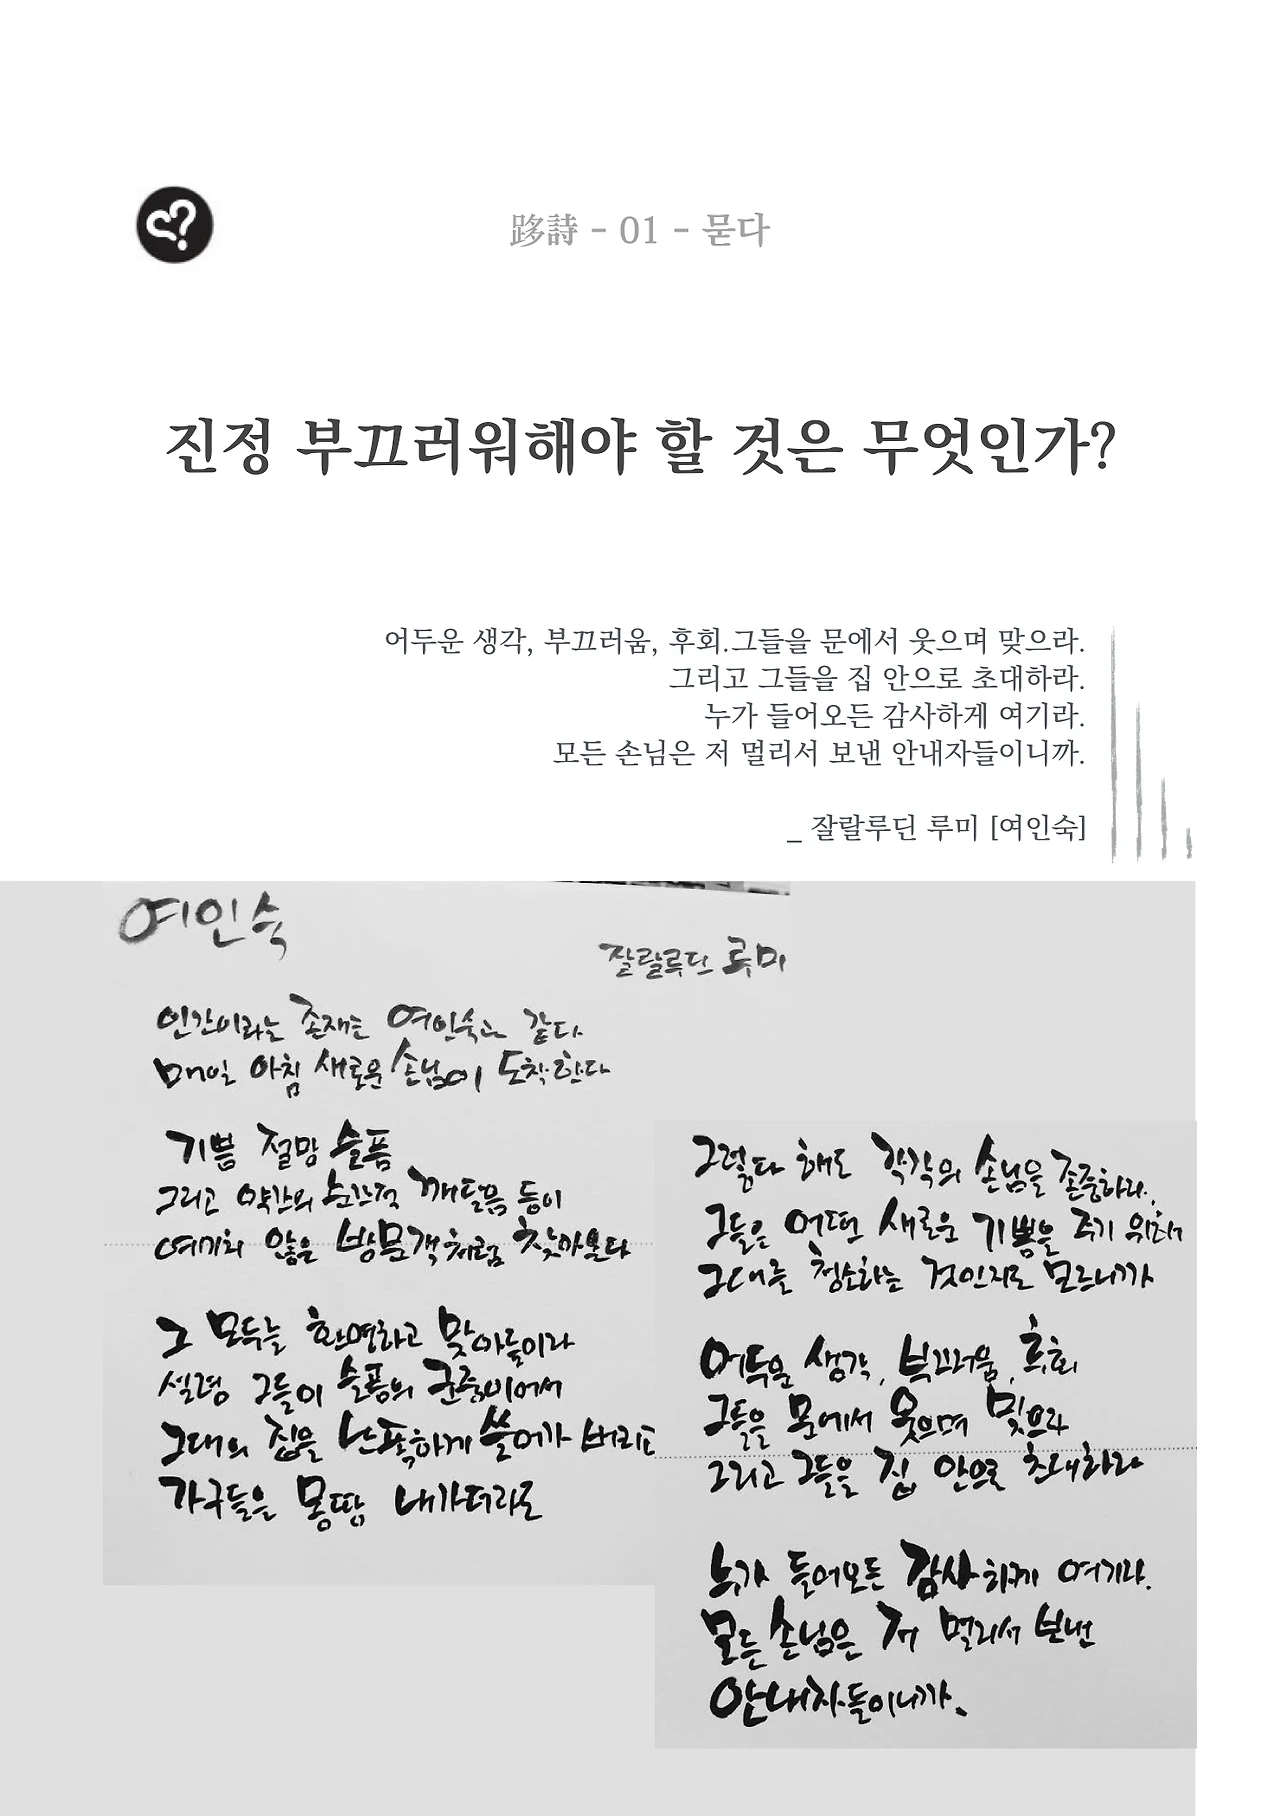 跢詩 - 01 - 묻다
진정 부끄러워해야 할 것은 무엇인가?
어두운 생각, 부끄러움, 후회.그들을 문에서 웃으며 맞으라.
그리고 그들을 집 안으로 초대하라.
누가 들어오든 감사하게 여기라.
모든 손님은 저 멀리서 보낸 안내자들이니까.
_ 잘랄루딘 루미 [여인숙]
여인숙
잘랄루딘 루미
인간이라는 존재는 여인숙과 같다
매일 아침 새로운 손님이 도착한다
기쁨 절망 슬픔
그리고 약간의 순간적 깨달음 등이
예기치 않은 방문객처럼 찾아온다
그 모두를 환영하고 맞아들이라
설령 그들이 슬픔의 군중이어서
그대의 집을 난폭하게 쓸어가 버리고
가구들을 몽땅 내가더라도
그렇다 해도 각각의 손님을 존중하라.
그들은 어떤 새로운 기쁨을 주기 위해
그대를 청소하는 것인지도 모르니까
어두운 생각, 부끄러움, 후회
그들을 문에서 웃으며 맞으라
그리고 그들을 집 안으로 초대하라
누가 들어오든 감사하게 여기라.
모든 손님은 저 멀리서 보낸
안내자들이니까.